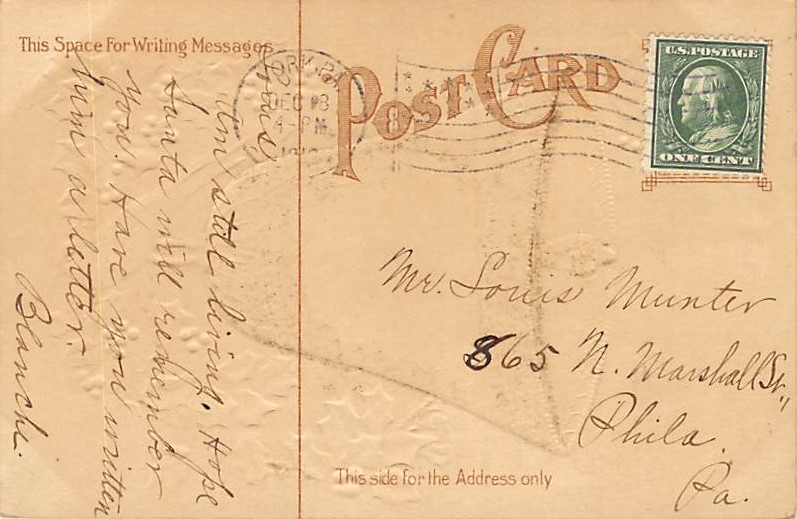 This Space For Writing Messages
POST CARD
U.S. POSTAGE
ONE CENT
DEC 
4-PM
8
Louis
Am still living. Hope
Santa will remember
you. Have you written
him a letter.
Blanche.
Mr. Louis Munter
865 N. Marshall St.,
Phila.
Pa.
This side for the Address only